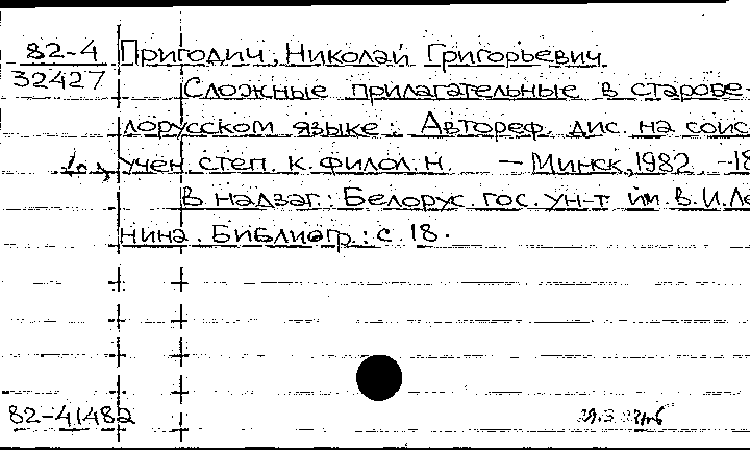 82-4 Пригодич, Николай Григорьевич
32427
Сложные прилагательные в старобе-
лорусском языке: Автореф. дис. на соис
учен. степ. к. филол. н. — Минск, 1982. -18
В надзаг.: Белорус. гос. ун-т им. В.И.Ле
нина. Библиогр.: с. 18.
82-41482